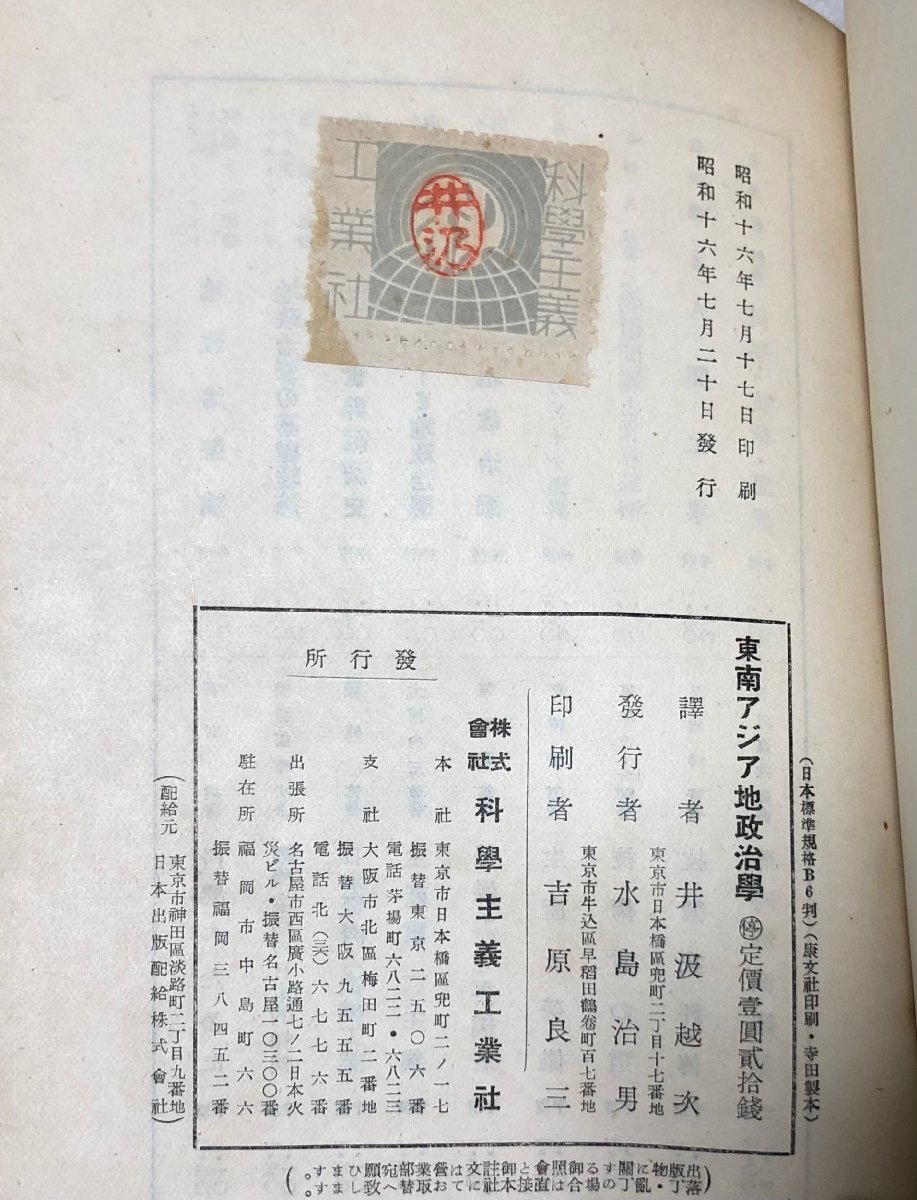 昭和十六年七月十七日印刷
昭和十六年七月二十日發行
科學主義
工業社
井汲
(日本標準規格B6判)(康文社印刷・寺田製本)
東南アジア地政治學 停 定價壹圓貳拾錢
譯者 井汲越次
東京市日本橋區兜町二丁目十七番地
發行者 水島治男
東京市牛込區早稻田鶴卷町百七番地
印刷者 吉原良三
發行所
株式會社 科學主義工業社
本社 東京市日本橋區兜町二ノ一七
振替東京二五〇六番
電話茅場町六八二二・六八二三
支社 大阪市北區梅田町二番地
振替大阪九五五五番
電話北(三六)六七七六番
出張所 名古屋市西區廣小路通七ノ二日本火
災ビル・振替名古屋一〇三〇〇番
駐在所 福岡市中島町六
振替福岡三八四五二番
(配給元 東京市神田區淡路町二丁目九番地
日本出版配給株式會社)